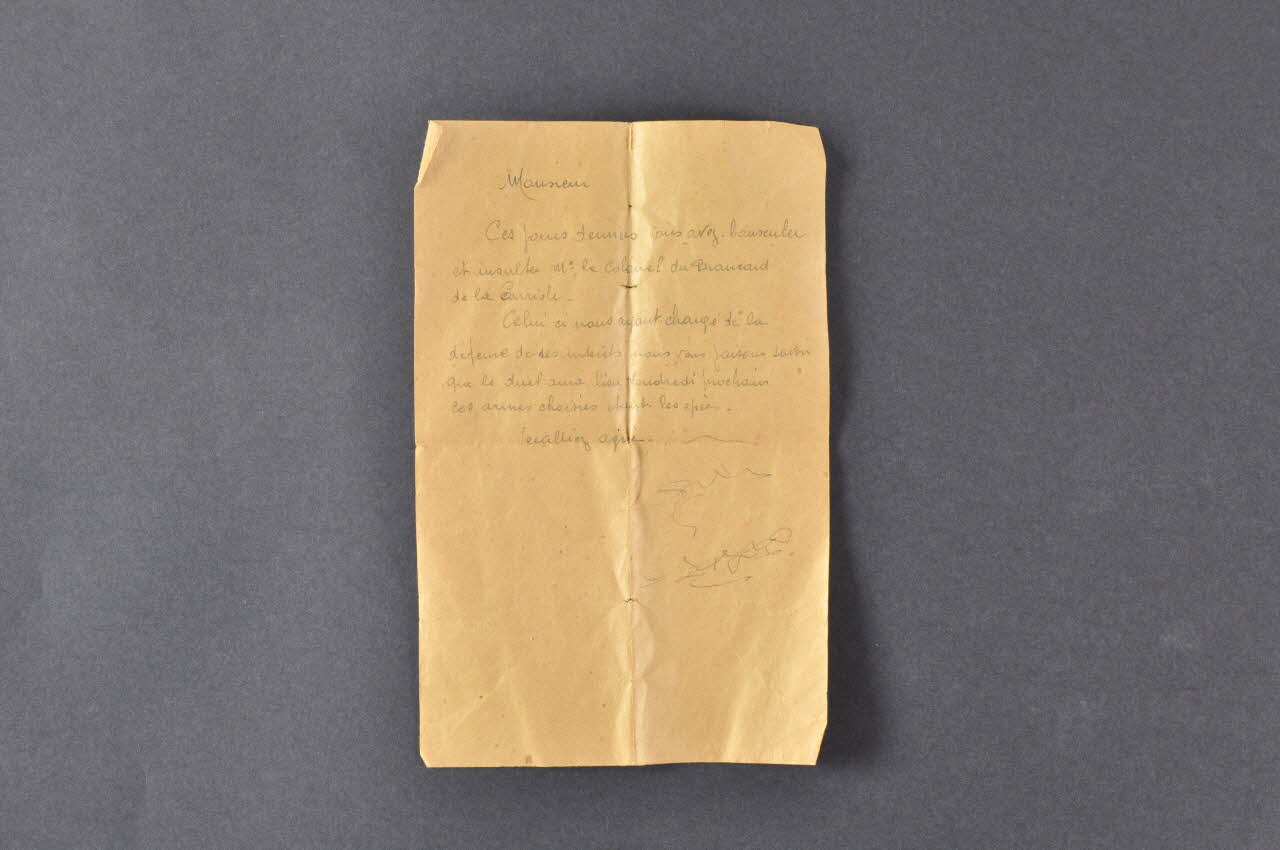 Monsieur
Ces jours derniers vous avez bousculer
et insulter Mr le Colonel du Brancard
de la Civière.
Celui ci nous ayant chargé de la
défense de ses intérêts nous vous faisons savoir
que le duel aura lieu Vendredi prochain
les armes choisies étant les épées.
Veuillez agré